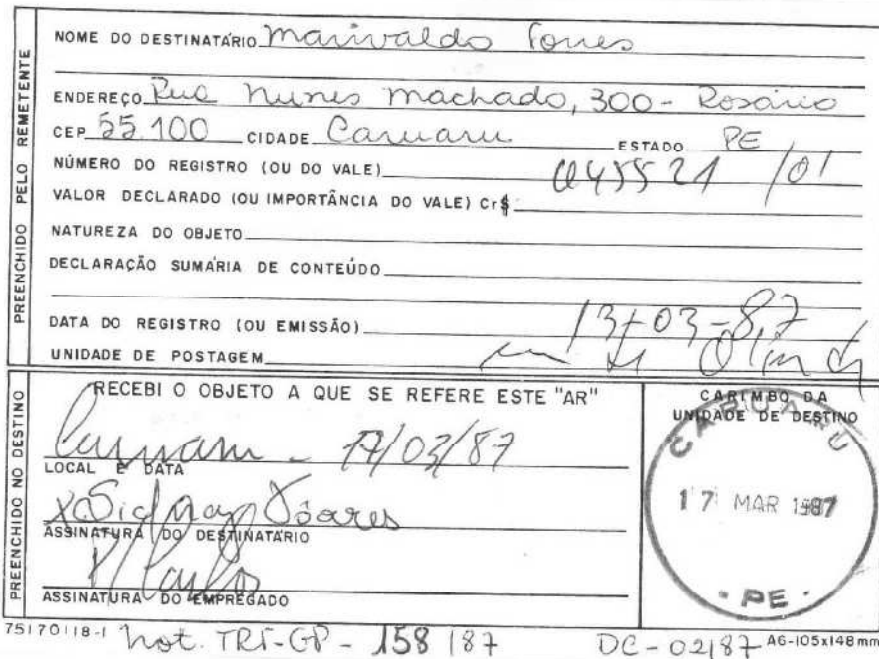 NOME DO DESTINATÁRIO Marivaldo Torres
ENDEREÇO Rua Nunes Machado, 300 - Rosário
CEP 55.100 CIDADE Caruaru ESTADO PE
NÚMERO DO REGISTRO (OU DO VALE) 045521 /01
VALOR DECLARADO (OU IMPORTÂNCIA DO VALE) Cr$
NATUREZA DO OBJETO
DECLARAÇÃO SUMÁRIA DE CONTEÚDO
DATA DO REGISTRO (OU EMISSÃO) 13-03-87
UNIDADE DE POSTAGEM
PREENCHIDO PELO REMETENTE
RECEBI O OBJETO A QUE SE REFERE ESTE "AR"
Caruaru - 17/03/87
LOCAL E DATA
Soares
ASSINATURA DO DESTINATÁRIO
ASSINATURA DO EMPREGADO
PREENCHIDO NO DESTINO
CARIMBO DA
UNIDADE DE DESTINO
CARUARU
17 MAR 1987
- PE -
75170118-1 Not. TRT-GP - 158/87 DC - 02/87 A6-105x148mm